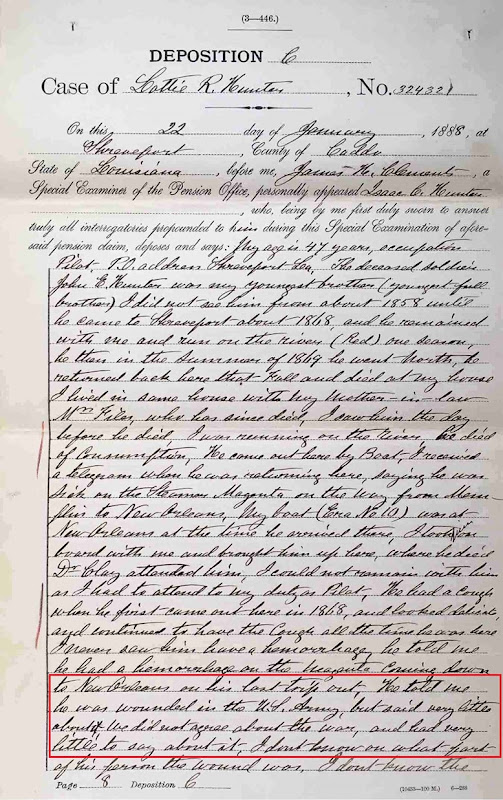 (3—446.)
DEPOSITION C
Case of Lottie R. Hunter, No. 324321
On this 22 day of January, 1888, at
Shreveport, County of Caddo
State of Louisiana, before me, James H. Clements, a
Special Examiner of the Pension Office, personally appeared Isaac C. Hunter
, who, being by me first duly sworn to answer
truly all interrogatories propounded to him during this Special Examination of afore-
said pension claim, deposes and says: My age is years, occupation
Pilot, P.O. address Shreveport La, The deceased soldier
John E. Hunter was my youngest brother (youngest full
brother) I did not see him from about 1858 until
he came to Shreveport about 1868, and he remained
with me and run on the river (Red) one season,
he then in the summer of 1869 he went North, he
returned back here that Fall and died at my house
I lived in same house with my Mother-in-law
Mrs Files, who has since died, I saw him the day
before he died, I was running on the River, he died
of Consumption, He come out here by Boat, I received
a telegram when he was returning here, saying he was
Sick on the Steamer Magenta on the way from Mem-
phis to New Orleans, My boat (Era No 10) was at
New Orleans at the time he arrived there, I took on
board with me and brought him up here, where he died
Dr Clay attended him, I could not remain with him
as I had to attend to my duty as Pilot, He had a cough
when he first came out here in 1868, and looked
and continued to have the Cough all the time he was here
I never saw him have a hemorrhage, he told me
he had a hemorrhage on the Magenta coming down
to New Orleans on his last trip out, He told me
he was wounded in the U.S. Army, but said very little
about it we did not agree about the war, and had very
little to say about it, I dont know on what part
of his person the wound was, I dont know the
Page 8 Deposition C
6—288